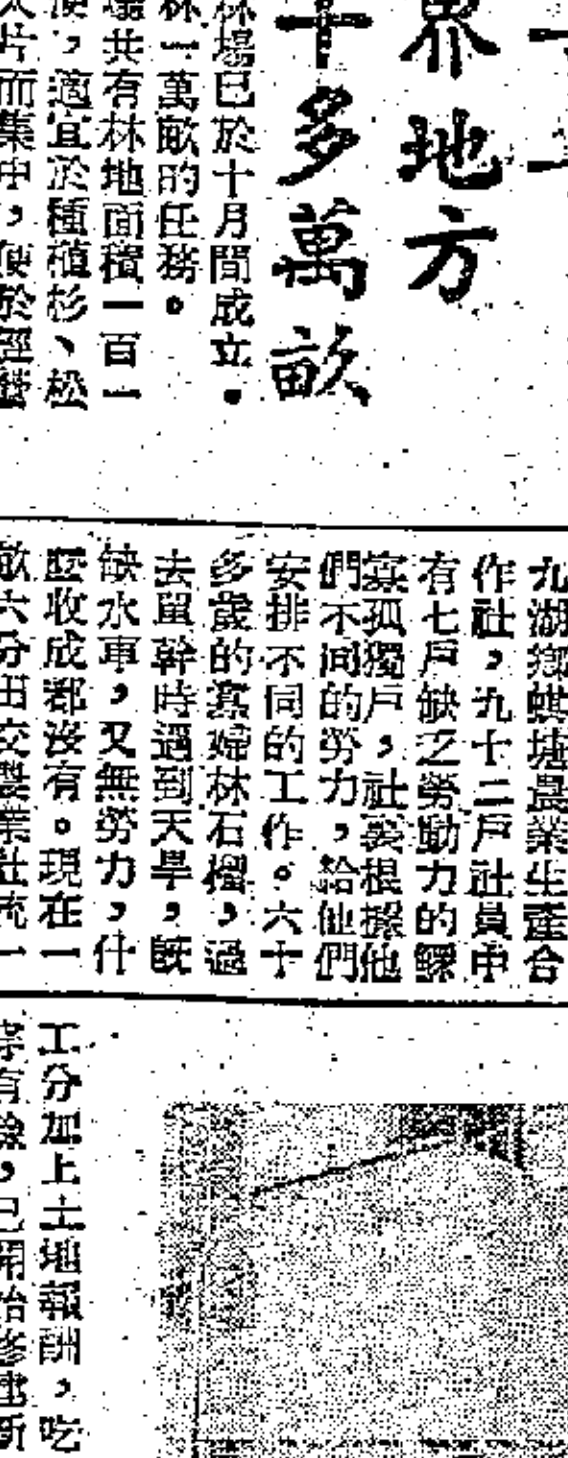 界地方
十多萬畝
林場已於十月間成立．
林一萬畝的任務。
場共有林地面積一百一
，適宜於種植杉、松
大片而集中，便於經營
九湖鄉蜞塘農業生產合
作社，九十二戶社員中
有七戶缺乏勞動力的鰥
寡孤獨戶，社裏根據他
們不同的勞力，給他們
安排不同的工作。六十
多歲的寡婦林石榴，過
去單幹時遇到天旱，既
缺水車，又無勞力，什
麼收成都沒有。現在一
畝六分田交農業社統一
工分加上土地報酬，吃
穿有餘，已開始修建新